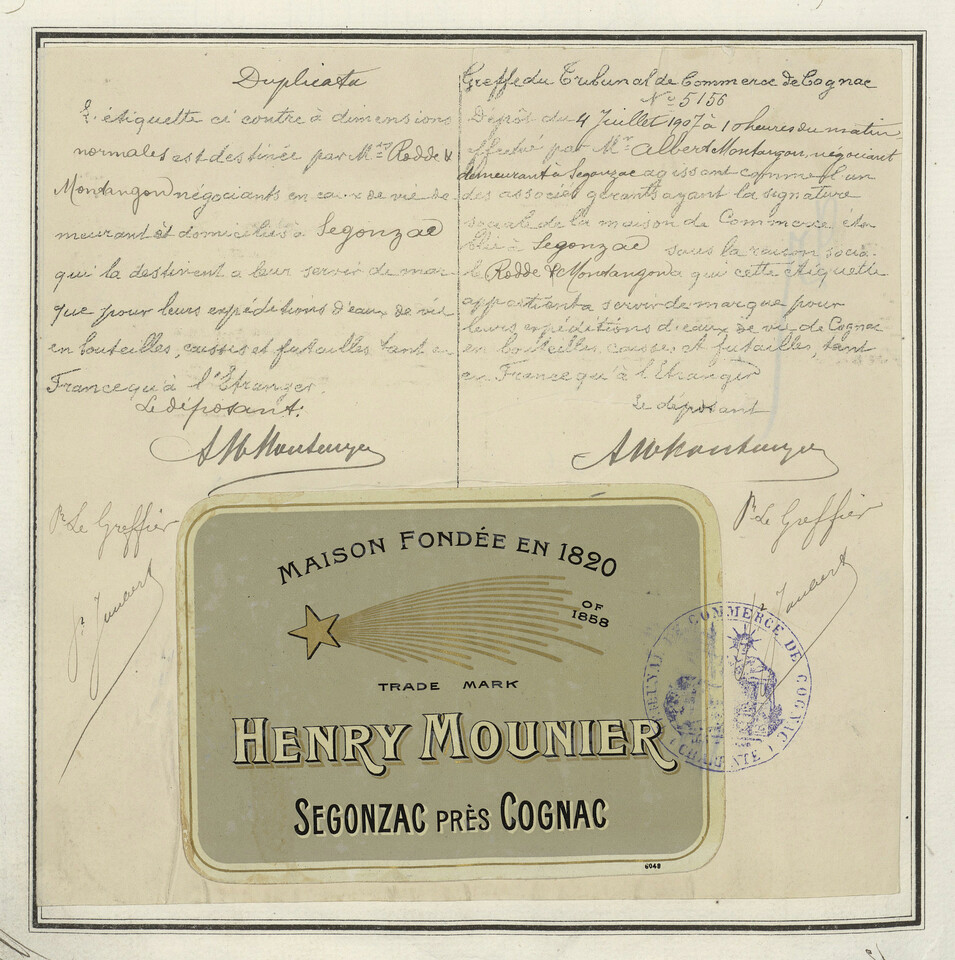 Duplicata
L'étiquette ci contre à dimensions
normales est destinée par Mrs Rodde &
Montangon négociants en eaux de vie de-
meurant et domiciliés à Segonzac
qui la destinent a leur servir de mar-
que pour leurs expéditions d'eaux de vie
en bouteilles, caisses et futailles tant en
France qu'à l'Etranger.
Le déposant:
Pr Le Greffier
Greffe du Tribunal de Commerce de Cognac
No 5156
Dépôt du 4 Juillet 1907 à 10 heures du matin
effectué par Mr Albert Montangon, négociant
demeurant à Segonzac agissant comme l'un
des associés gérants ayant la signature
sociale de la maison de Commerce éta-
blie à Segonzac sous la raison socia-
le Rodde & Montangon a qui cette étiquette
appartient a servir de marque pour
leurs expéditions d'eaux de vie de Cognac
en bouteilles caisses et futailles, tant
en France qu'à l'Etranger
Le déposant
Pr Le Greffier
MAISON FONDÉE EN 1820
OF
1858
TRADE MARK
HENRY MOUNIER
SEGONZAC PRÈS COGNAC
6048
TRIBUNAL DE COMMERCE DE COGNAC
(CHARENTE)